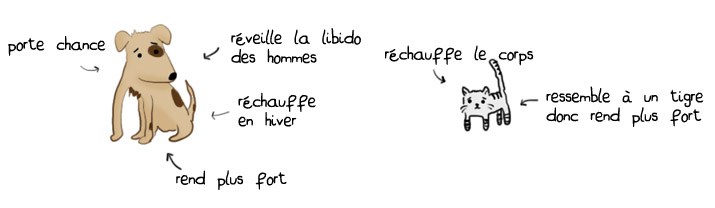 porte chance
réveille la libido
des hommes
réchauffe
en hiver
rend plus fort
réchauffe le corps
ressemble à un tigre
donc rend plus fort